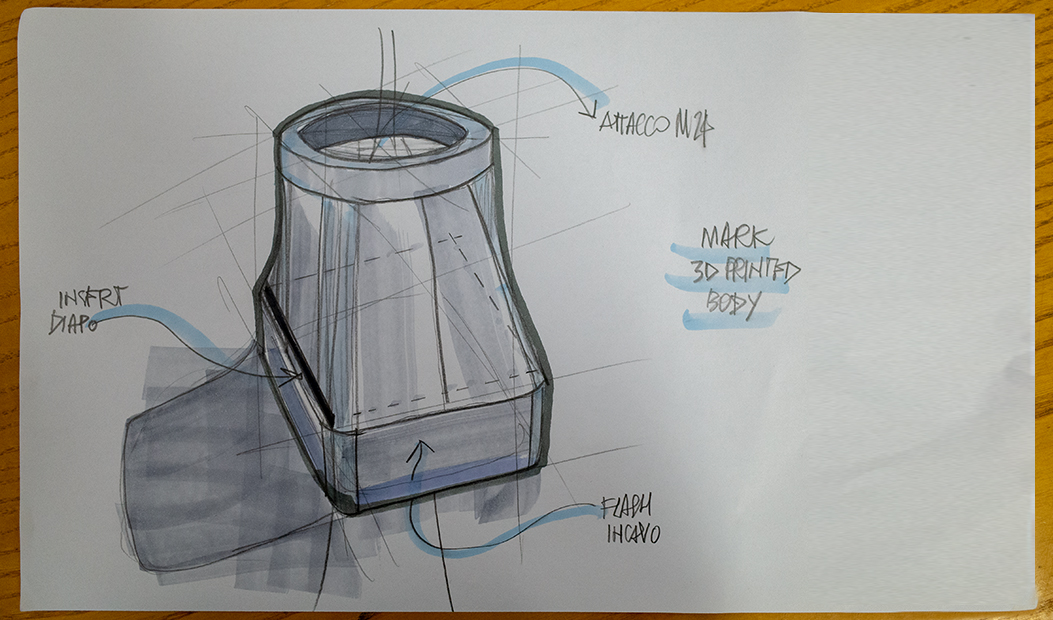 ATTACCO M24
MARK
3D PRINTED
BODY
INSERT
DIAPO
FLASH
INCAVO